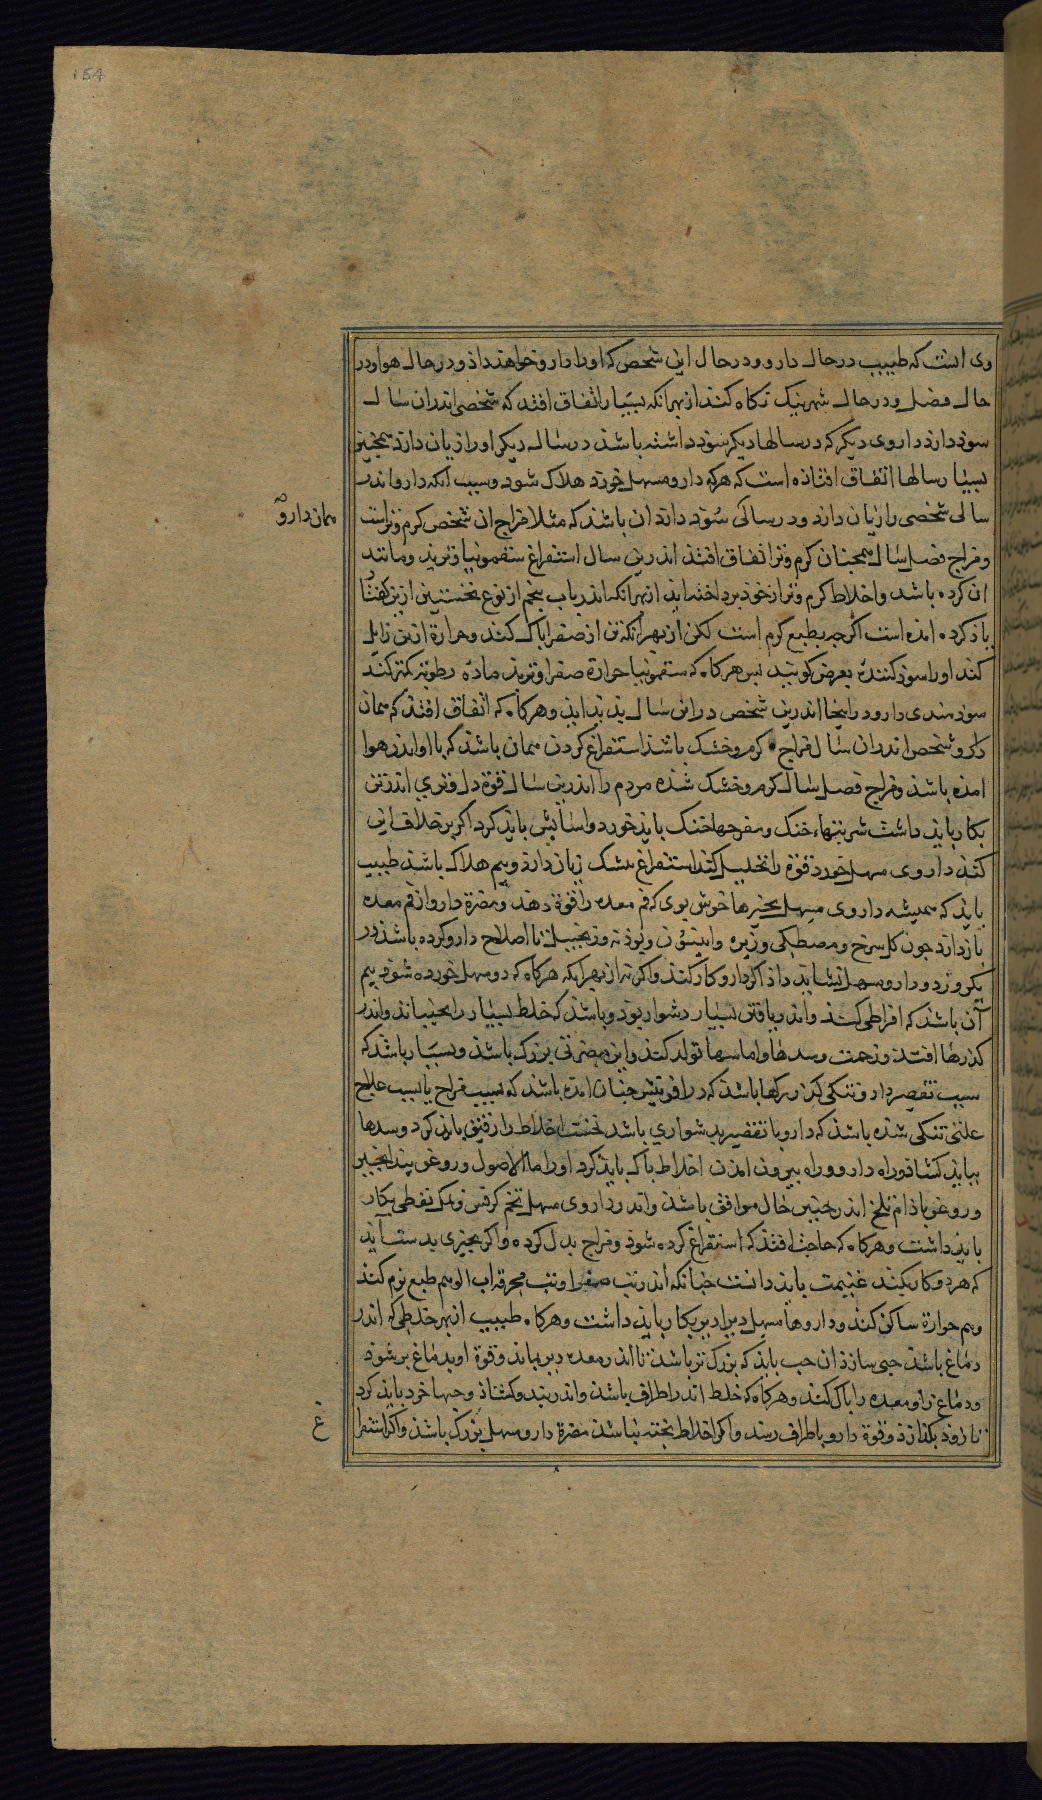 154
وی انست که طبیب در حال دارو و در حال این شخص که او را دارو خواهند داذ و در حال هوا و در
حال فصل و در حال شهر نیک نکاه کند از بهر انکه بسیار اتفاق افتد که شخصی اندران سال
سوذ دارد داروی دیکر که در سالها دیکر سوذ داشته باشد در سال دیکر او را زیان دارد همجنین
بسیار سالها اتفاق افتاذه است که هرکه دارو مسهل خورد هلاک شود و سبب انکه دارو اندر
سالی شخصی را زیان دارد و در سالی سوذ دارد ان باشذ که مثلا مزاج ان شخص کرم و تر است
همان دارو
و مزاج فصل سال همجنان کرم و تر اتفاق افتذ اندرین سال استفراغ بسقمونیا و تربد و مانند
ان کرده باشد و اخلاط کرم و تر از خوذ برداخته اید از بهر انکه اندر باب بنجم از نوع نخستین ازین کفتار
یاذ کرده امده است اکرجه بطبع کرم است لکن از بهر انکه تن از صفرا باک کند و حرارة از تن زایل
کند او را سوذ کننده بعرض کویند بس هرکاه که سقمونیا حرارة صفرا و تربد ماده رطوبة کمتر کند
سوذمندی دارو در اینجا اندرین شخص دران سال بدید اید و هرکاه که اتفاق افتذ که همان
دارو شخص اندران سال مزاج کرم و خشک باشذ استفراغ کردن همان باشذ که با او اندر هوا
امذه باشذ و مزاج فصل سال کرم و خشک شذه مردم را اندرین سال قوة دل و تری اندر تن
بکار باید داشت شربتهاء خنک و مفرحها خنک باید خورد و اسایش باید کرد اکر بر خلاف این
کنذ داروی مسهل خورد قوة را تحلیل کند استفراغ بیشک زیان دارد و بیم هلاک باشذ طبیب
بایذ که همیشه داروی مسهل بجیزها خوش بوی که فم معده را قوة دهذ و مضرة دارو از فم معده
باز دارد جون کل سرخ و مصطکی و زیره و انیسون و بوذنه و زنجبیل تا اصلاح دارو کرده باشذ در
یکروز دو دارو مسهل نشایذ داذ اکر دارو کار کند و اکر نه از بهر انکه هرکاه که دو مسهل خورده شوذ بیم
آن باشذ که افراطی کند و اندر یافتن بسیار دشوار بوذ و باشذ که خلط بسیار را بجنباند و اندر
کذرها افتذ و زحمت و سدها و اماسها تولد کند و این مضرتی بزرک باشذ و بسیار باشذ که
سبب تقصیر دارو تنکی کذر رکها باشذ که در افرینش جنان امذه باشذ که بسبب مزاج یا بسبب علاج
علتی تنکی شذه باشذ که دارو با تقصیر بدشواری باشذ نخست اخلاط را رقیق باید کرد و سدها
ببایذ کشاذ و راه دارو و راه بیرون امذن اخلاط باک بایذ کرد او را ماالاصول و روغن بیدانجیر
و روغن باذام تلخ اندر جنین حال موافق باشذ و اندر داروی مسهل تخم کرفس و نمک نفطی بکار
بایذ داشت و هرکاه که حاجت افتذ که استفراغ کرده شوذ و مزاج بدل کرده و اکر بجیزی بدست آید
که هر دو کار بکند غنیمت بایذ دانست جنانکه اندر تب صفرا و تب محرقه اب الو هم طبع نرم کند
و هم حرارة ساکن کند و داروها مسهل بکار باید داشت و هرکاه طبیب از بهر خلطی که اندر
دماغ باشذ حبی سازذ ان حب باید که بزرک تر باشذ تا اندر معده دیر بماند و قوة او بدماغ بر شوذ
و دماغ را و معده را باک کند و هرکاه که خلط اندر اطراف باشذ و اندر بند و کشاذ و حبها خرد باید کرد
تا زوذ بکذارذ و قوة دارو باطراف رسد و اکر اخلاط بخته نباشذ مضرة دارو مسهل بزرک باشذ و اکر استفرا
غ